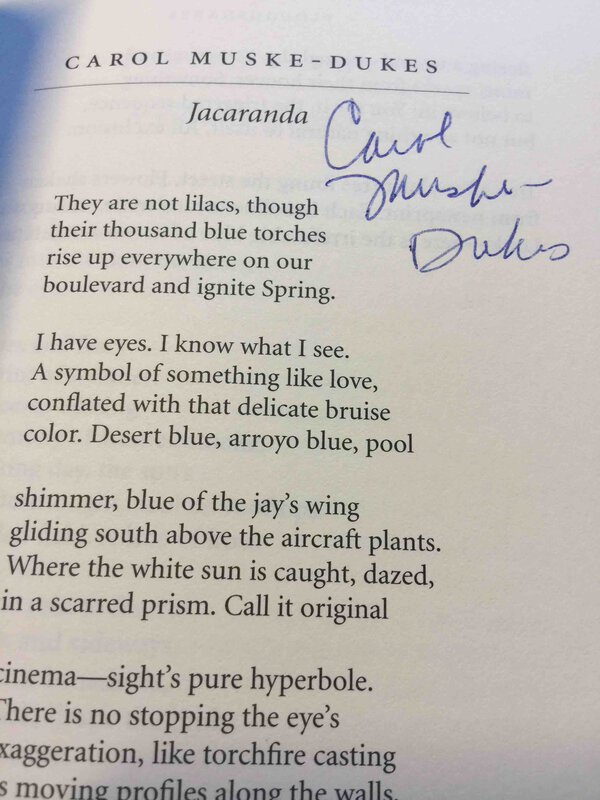 CAROL MUSKE-DUKES
Jacaranda
Carol
Muske-
Dukes
They are not lilacs, though
their thousand blue torches
rise up everywhere on our
boulevard and ignite Spring.
I have eyes. I know what I see.
A symbol of something like love,
conflated with that delicate bruise
color. Desert blue, arroyo blue, pool
shimmer, blue of the jay's wing
gliding south above the aircraft plants.
Where the white sun is caught, dazed,
in a scarred prism. Call it original
cinema—sight's pure hyperbole.
There is no stopping the eye's
xaggeration, like torchfire casting
s moving profiles along the walls.